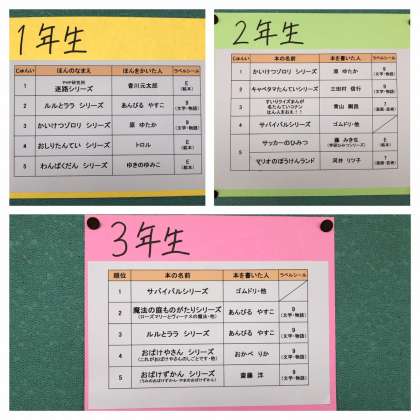 1年生
じゅんい ほんのなまえ ほんをかいた人 ラベルシール
1 PHP研究所 迷路シリーズ 香川元太郎 E (絵本)
2 ルルとララ シリーズ あんびる やすこ 9 (文学・物語)
3 かいけつゾロリ シリーズ 原 ゆたか 9 (文学・物語)
4 おしりたんてい シリーズ トロル E (絵本)
5 わんぱくだん シリーズ ゆきのゆみこ E (絵本)
2年生
じゅんい 本の名前 本を書いた人 ラベルシール
1 かいけつゾロリ シリーズ 原 ゆたか 9 (文学・物語)
2 キャベたまたんてい シリーズ 三田村 信行 9 (文学・物語)
3 すいりクイズまんが
名たんていコナン
はんんをおえ!! 青山 剛昌 7
4 サバイバル シリーズ ゴムドリ・他
5 サッカーのひみつ 7
マリオのぼうけんランド 河井 リツ子 7
3年生
順位 本の名前 本を書いた人 ラベルシール
1 サバイバルシリーズ ゴムドリ・他
2 魔法の庭ものがたりシリーズ あんびる やすこ 9 (文学・物語)
(ローズマリーとヴィーナスの魔法・他)
3 ルルとララ シリーズ あんびる やすこ 9 (文学・物語)
4 おばけやさん シリーズ おかべ りか 9 (文学・物語)
(これがおばけやさんのしごとです・他)
5 おばけずかん シリーズ 斎藤 洋 9 (文学・物語)
(うみのおばけずかん・やまのおばけずかん)